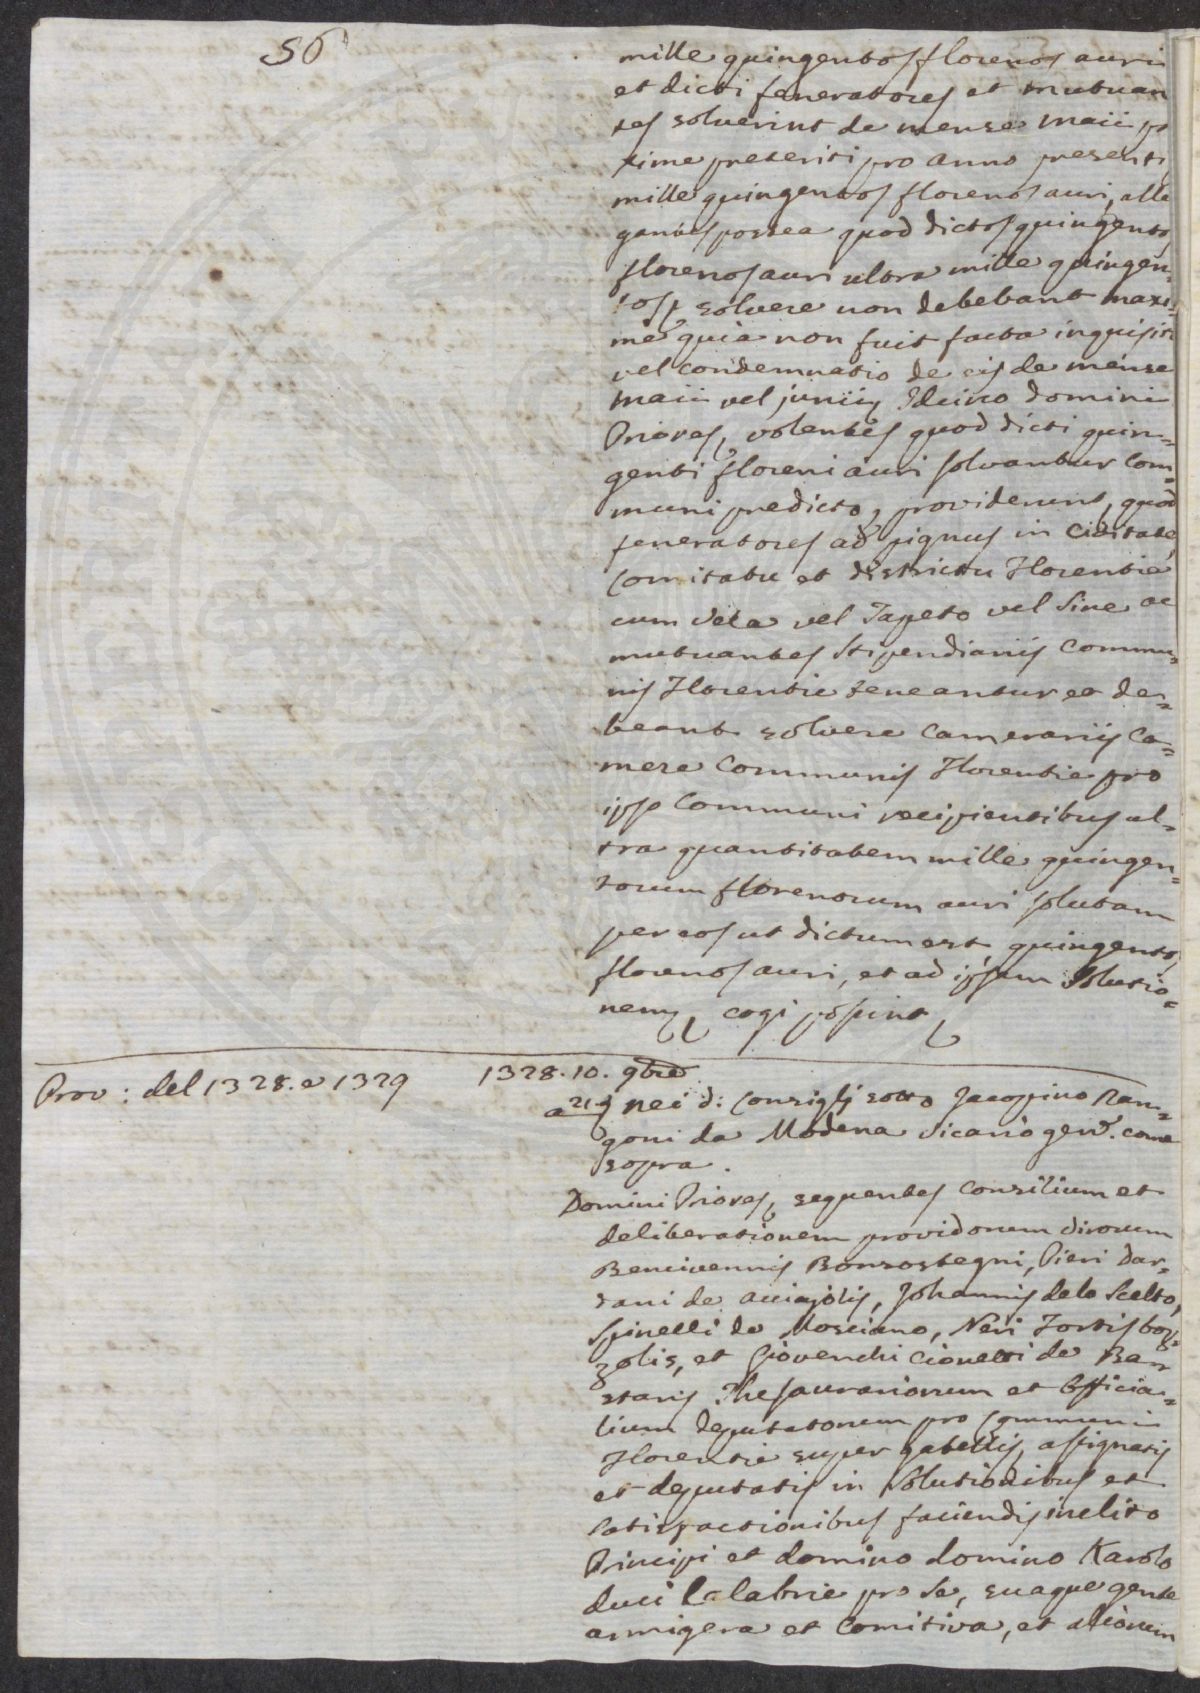 56
mille quingentos florenos auri
et dicti feneratores et mutuan
tes solverint de mense maii p
xime preteriti pro anno presenti
mille quingentos florenos auri, alle
gantes postea quod dictos quingentos
florenos auri ultra mille quingen=
tos solvere non debebant maxi=
me quia non fuit facta inquisiti
vel condemnatio de eis de mense
maii vel junii, Idcirco domini
Priores, volentes quod dicti quin=
genti floreni auri solvantur Com=
muni predicto, providerunt, quod
feneratores ad pignus in Civitate,
Comitatu et districtu Florentie
cum vela vel Tapeto vel sine ac
mutuantes stipendiariis Commu=
nis Florentie teneantur et de=
beant solvere Camerariis Ca=
mere Communis Florentie pro
ipso Communi recipientibus ul=
tra quantitatem mille quingen=
torum florenorum auri solutam
per eos ut dictum est quingentos
florenos auri, et ad ipsam solutio=
nem, cogi possint
Prov: del 1328. e 1329
1328. 10. 9bre
a 21 nei d: Consiglj sotto Jacopino Ran=
goni da Modena Vicario gen. come
sopra.
Domini Priores, sequentes consilium et
deliberationem providorum virorum
Bencivennis Bonsostegni, Pieri Dar=
dani de Acciajolis, Johannis delo Scelto,
Spinelli de Mosciano, Neri Fortis boz=
zolis, et Giovenchi Cionetti de Ba=
staris Thesaurariorum et Officia=
lium deputatorum pro Communi
Florentie super gabellis, assignatis
et deputatis in solutionibus et
satisfactionibus faciendis inclito
Principi et domino domino Karolo
duci Calabrie pro se, suaque gente
armigera et Comitiva, et aliorum